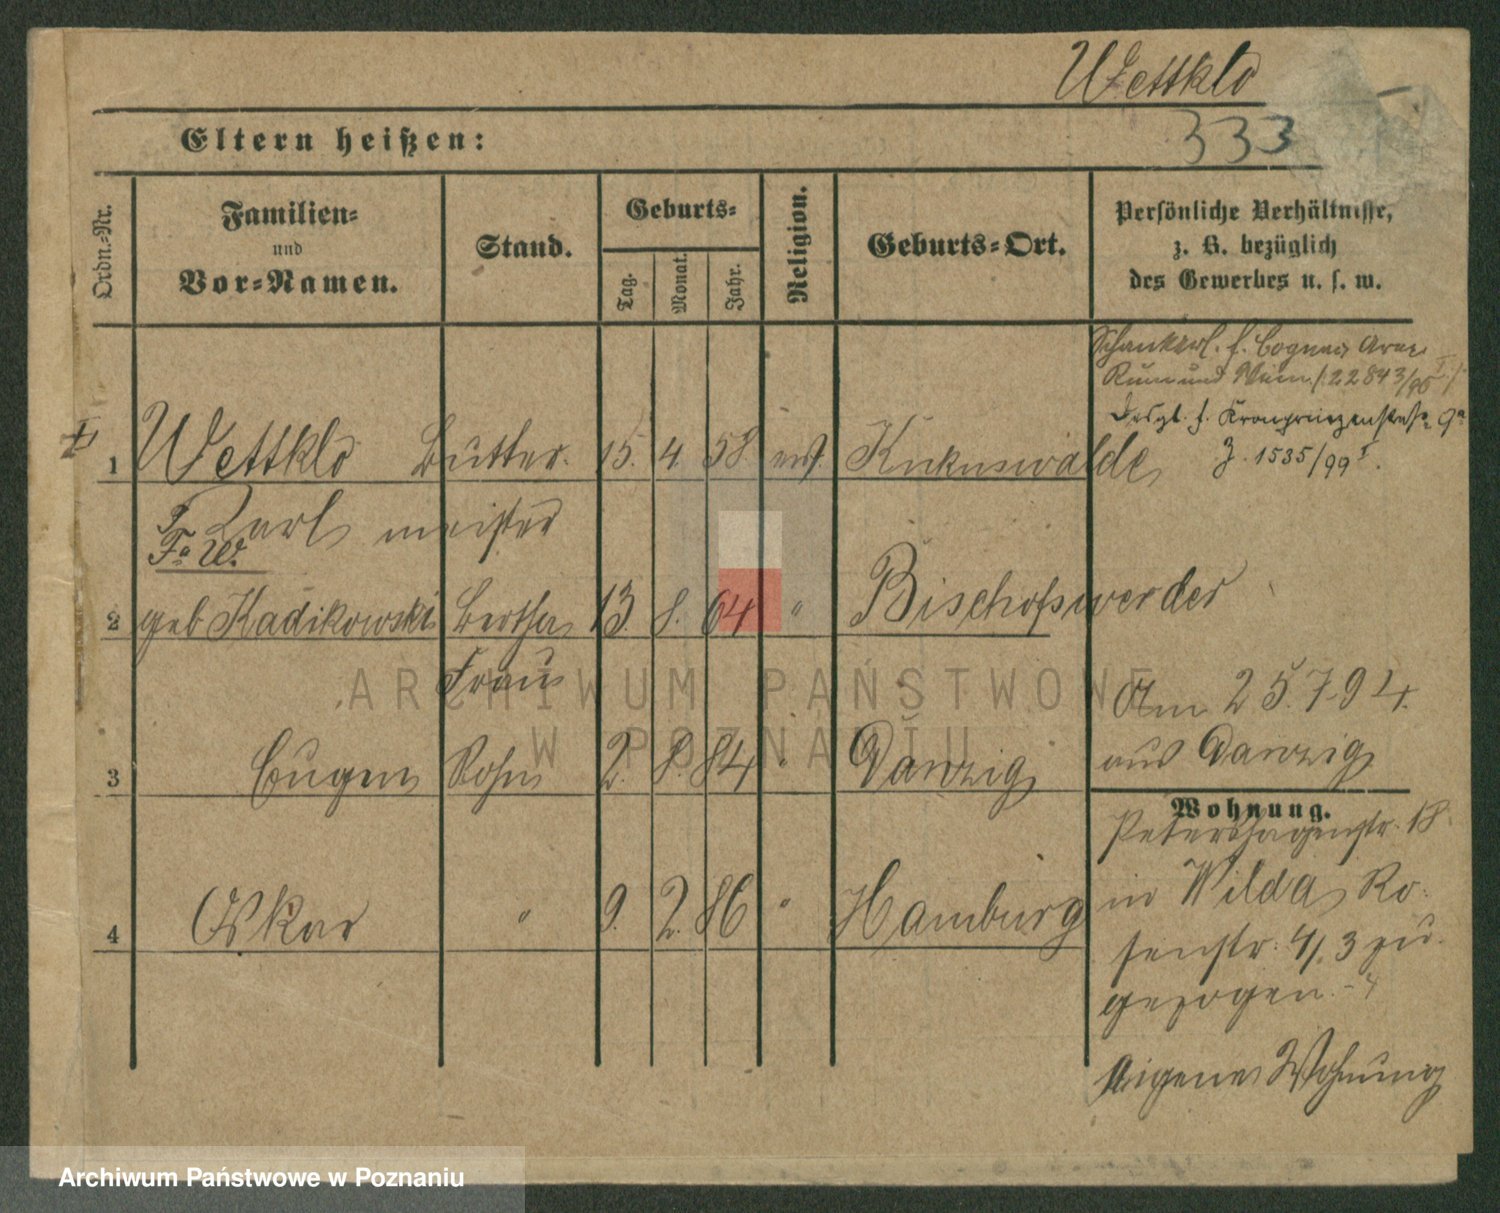 Wettklo
333
Eltern heißen:
Ordn.-Nr.
Familien-
und
Vor-Namen.
Stand.
Geburts-
Tag.
Monat.
Jahr.
Religion.
Geburts-Ort.
Persönliche Verhältnisse,
z. B. bezüglich
des Gewerbes u. s. w.
Schankerl. f. Cognac Arac
Rum und Wein /: 22843/96 I :/
Desgl. f. Kronprinzenstraße 9a
J. 1535/99 I.
1 Wettklo Butter- 15. 4. 58. ev. Kukuswalde
Karl meister
Fa W.
2 geb Kadikowski Bertha 13. 8. 64 " Bischofswerder
Frau
Am 25.7.94.
aus Danzig
3 Eugen Sohn 2. 8. 84 " Danzig
Wohnung.
Petershagenstr. 18.
in Wilda Ro-
senstr. 4/3 zu-
gezogen.
4 Oskar " 9. 2. 86 " Hamburg
eigene Wohnung
ARCHIWUM PAŃSTWOWE
W POZNANIU
Archiwum Państwowe w Poznaniu